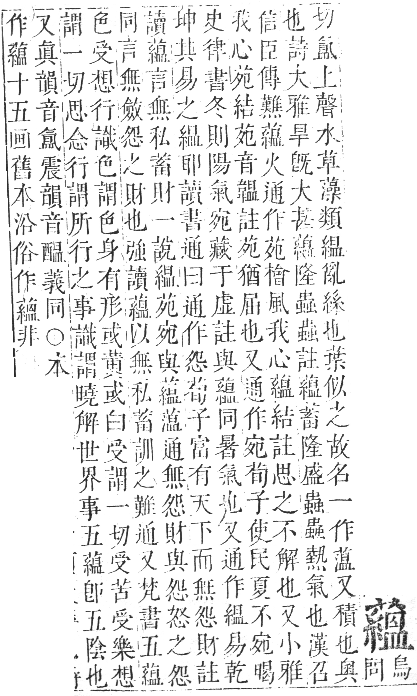 蘊烏問
切氳上聲水草藻類縕亂絲也葉似之故名一作薀又積也與
也詩大雅旱旣大甚蘊隆蟲蟲註蘊蓄隆盛蟲蟲熱氣也漢召
信臣傳難蘊火通作苑檜風我心蘊結註思之不解也又小雅
我心苑結苑音韞註苑猶屈也又通作宛荀子使民夏不宛暍
史律書冬則陽氣宛藏于虛註與蘊同暑氣也又通作縕易乾
坤其易之縕耶讀書通曰通作怨荀子富有天下而無怨財註
讀蘊言無私蓄財一說縕苑宛與蘊薀通無怨財與怨怒之怨
同言無斂怨之財也強讀蘊以無私蓄訓之難通又梵書五蘊
色受想行識色謂色身有形或黃或白受謂一切受苦受樂想
謂一切思念行謂所行之事識謂曉解世界事五蘊卽五陰也
又眞韻音氳震韻音醞義同○本
作蘊十五画舊本沿俗作蘊非